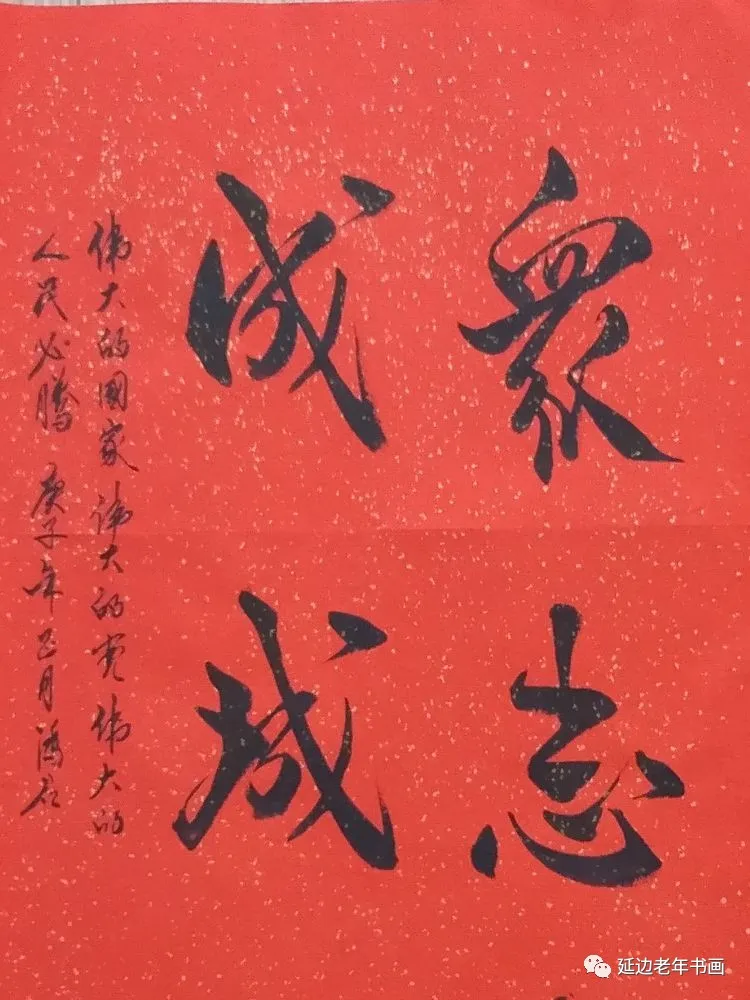 眾志
成城
伟大的國家伟大的党伟大的
人民必腾 庚子年正月
延边老年书画